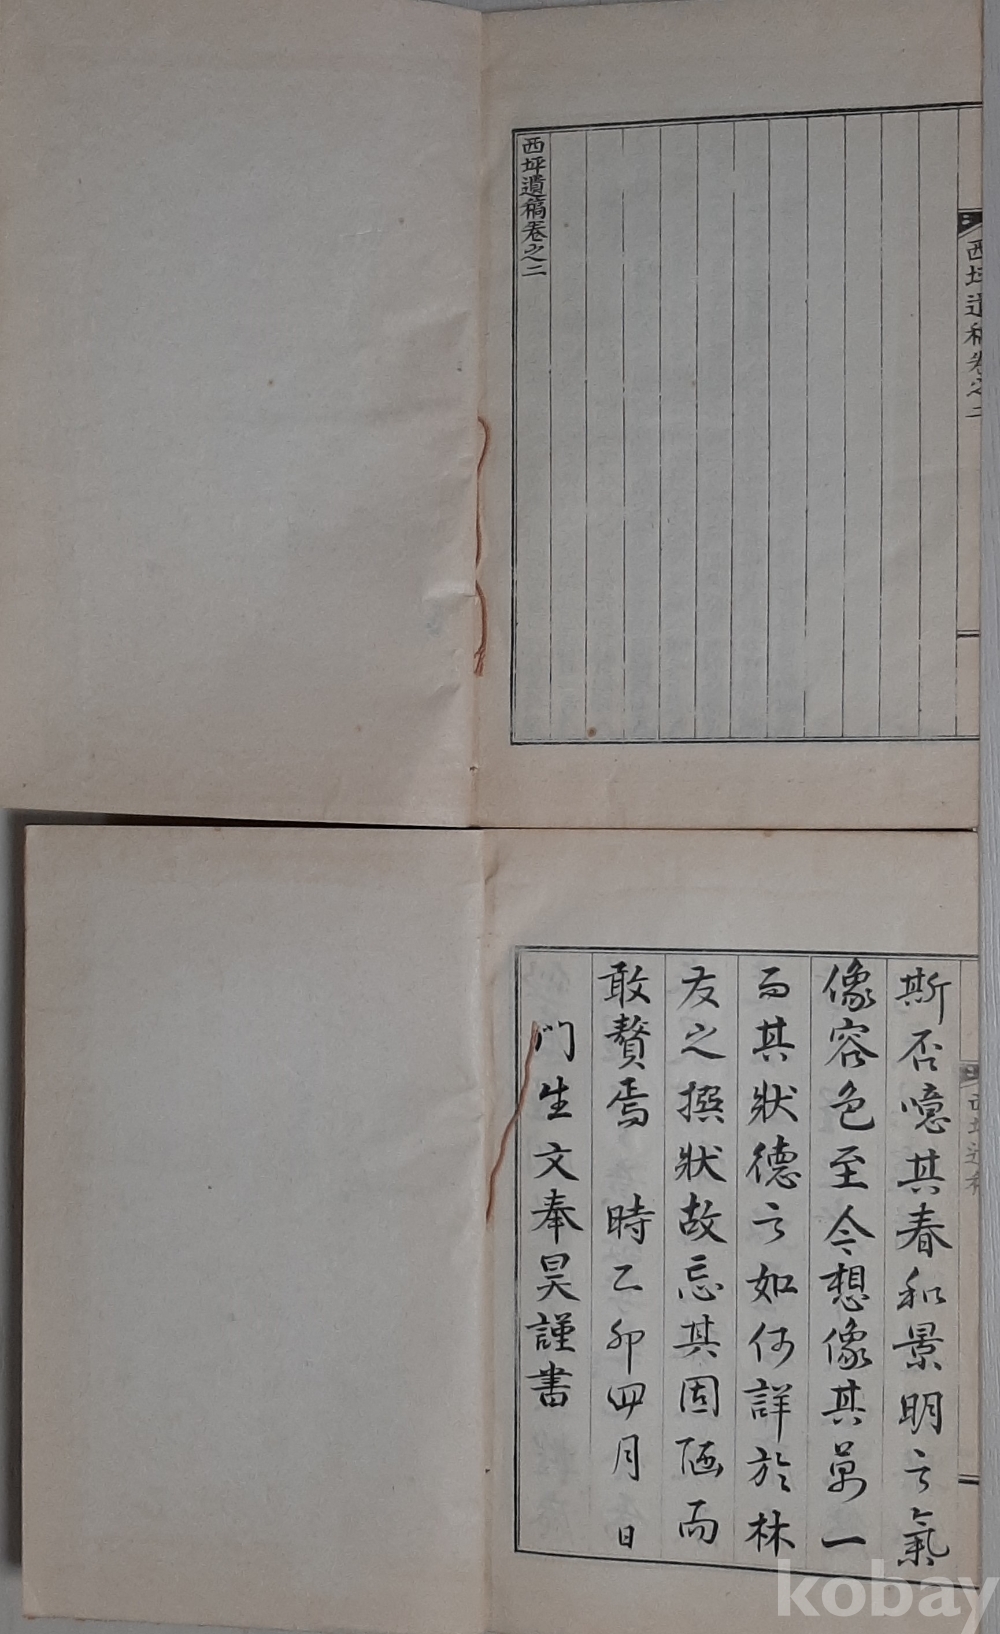 西坪遺稿卷之二
西坪遺稿卷之二
斯否噫其春和景明之氣
像容色至今想像其萬一
而其狀德之如何詳於林
友之撰狀故忘其固陋而
敢贅焉 時乙卯四月 日
門生文奉昊謹書
西坪遺稿
kobay